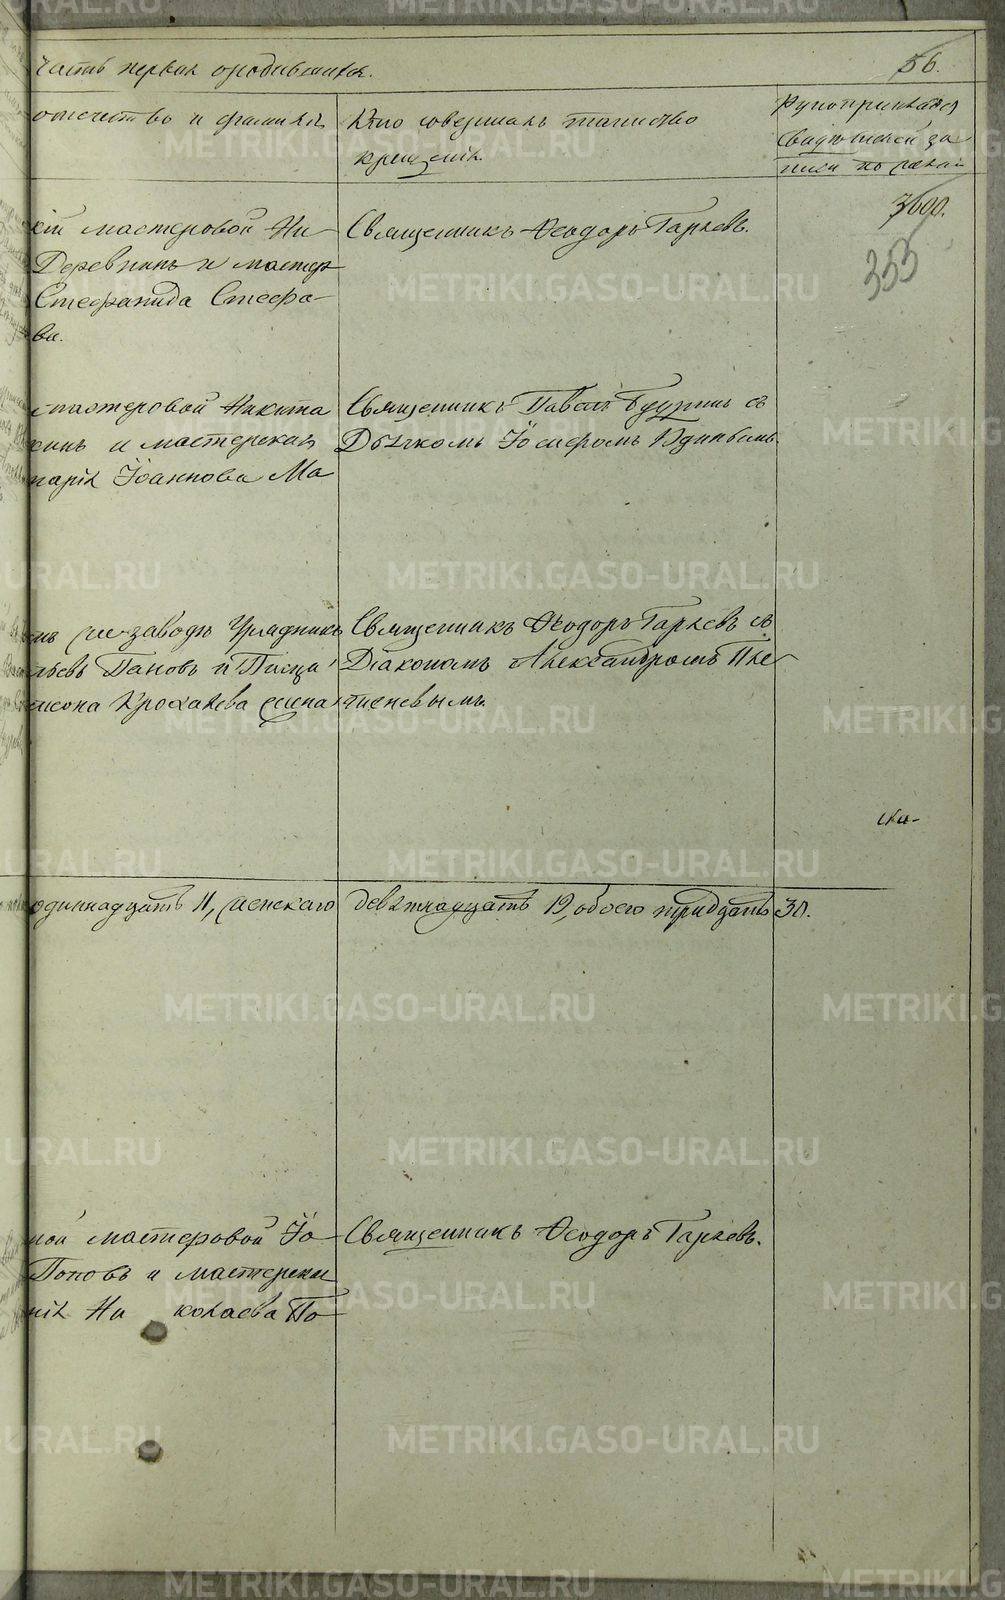 Часть первая о родившихся.
56.
отечество и фамилія
Кто совершалъ таинство
крещенія.
Рукоприкладст
свидѣтелей за
писи по желан
3600.
353
кій мастеровой Ни
Деревнинъ и мастер
Стефанида Стефа-
ва.
Священникъ Ѳеодоръ Гаряевъ.
мастеровой Никита
кинъ и мастерская
марія Іоаннова Ма
Священникъ Павелъ с
Дьячкомъ Іосифомъ Удинцевымъ.
заводѣ Урядникъ
льевъ Пановъ и
Священникъ Ѳеодоръ Гаряевъ съ
Діакономъ Александромъ Пле
тневымъ.
одиннадцать 11, женскаго девятнадцать 19, обоего тридцать 30.
ной мастеровой Іо
Поповъ и мастерска
нія Ни колаева По
Священникъ Ѳеодоръ Гаряевъ.
METRIKI.GASO-URAL.RU